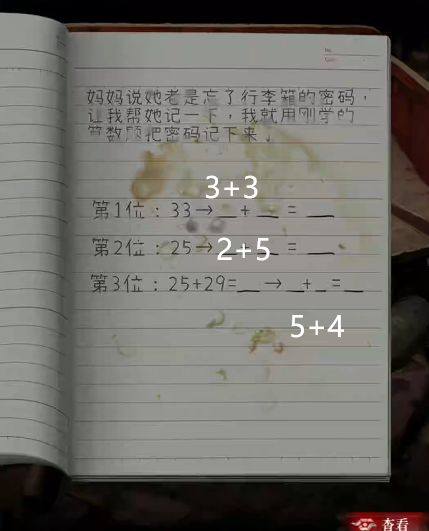 妈妈说她老是忘了行李箱的密码，
让我帮她记一下，我就用刚学的
算数题把密码记下来了
3+3
第1位：33→__+__=__
第2位：25→__+__=__
2+5
第3位：25+29=__→__+__=__
5+4
查看